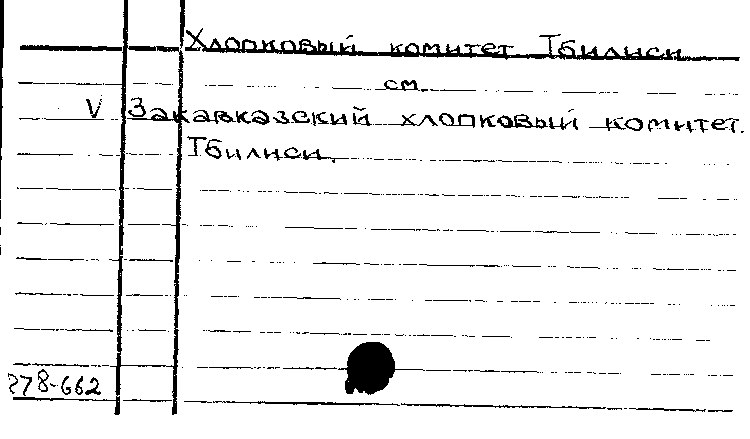 Хлопковый комитет. Тбилиси
см.
V Закавказский хлопковый комитет.
Тбилиси.
278-662